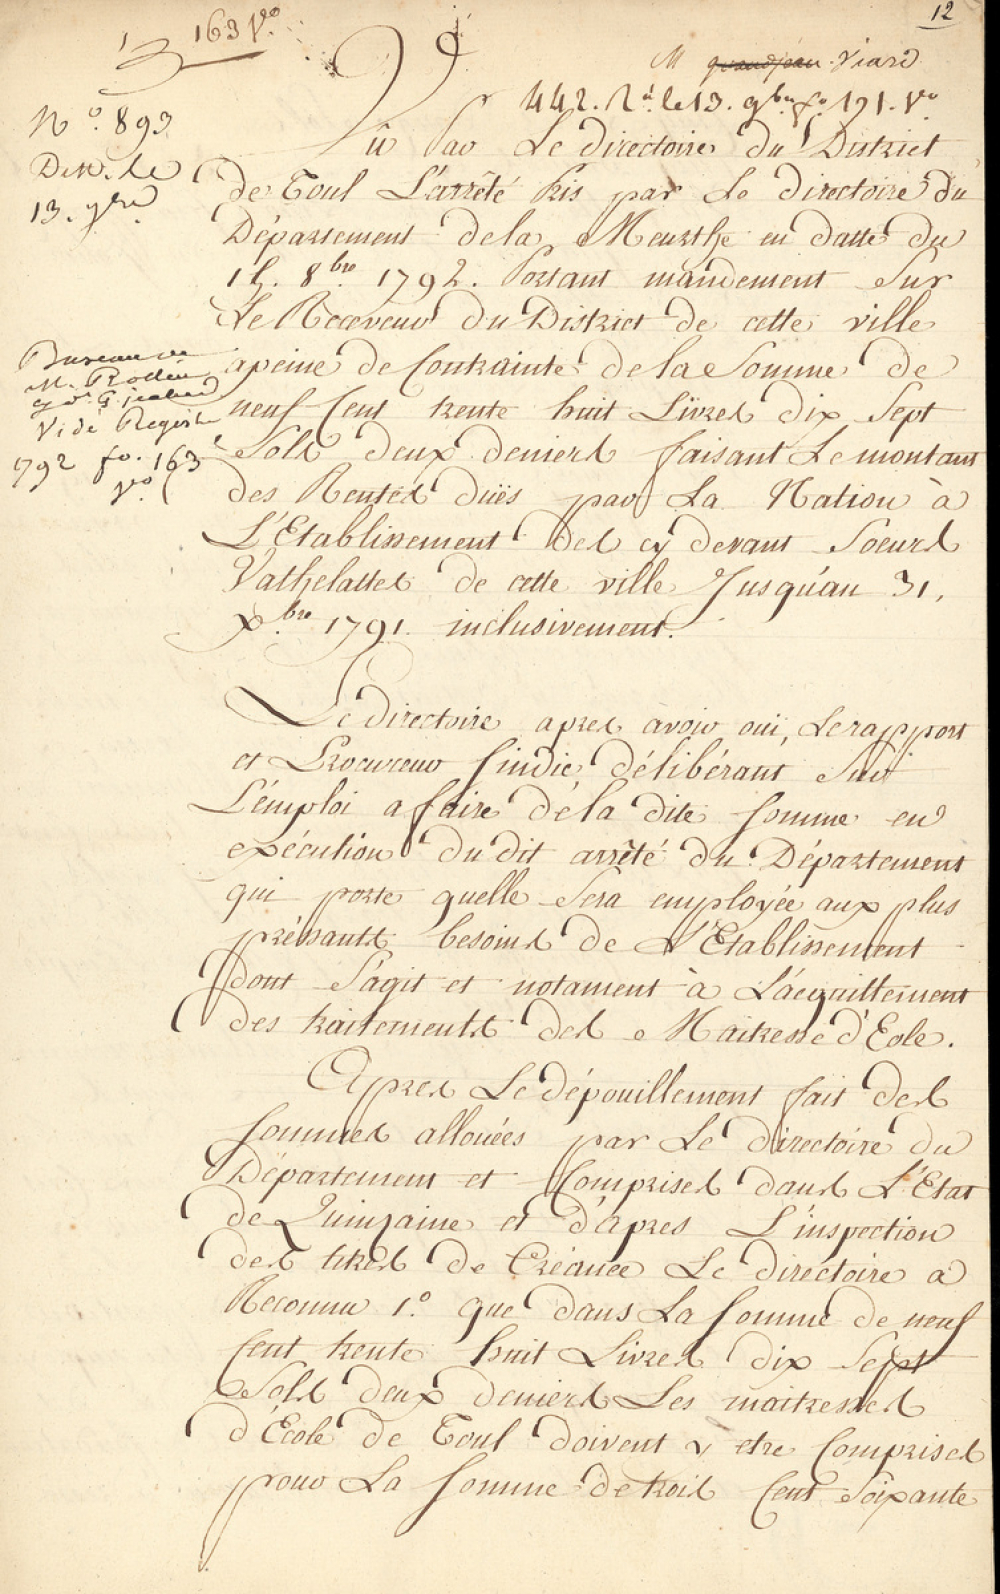 12
163 V.º
M Viard
442. R.é le 13. 9bre fo. 191. vo
N.º 893
Dew. le
13. 9bre
Vû par Le directoire du District
de Toul L'arrêté Pris par Le directoire du
Département de la Meurthe en datte du
15. 8bre 1792. Portant mandement Sur
Le Receveur du District de cette ville
Bureau
M. Rollin
Vide Registre
1792 fo. 163
vo
apeine de Contrainte de la Somme de
neuf Cent trente huit Livres dix Sept
Sols deux deniers faisant Le montant
des Rentes duës par La Nation à
L'Etablissement des cy devant Soeurs
Vathelottes de cette ville Jusqu'au 31.
xbre 1791. inclusivement.
Le directoire apres avoir oui, Le rapport
et Procureur Sindic, délibérant Sur
L'emploi a faire de la dite Somme en
exécution du dit arrêté du Département
qui porte quelle Sera employée aux plus
pressants besoins de L'Etablissement
dont S'agit et notament à L'acquittement
des traitements des Maitresse d'Eole.
Apres Le dépouillement fait des
Sommes allouées par Le directoire du
Département et Comprises dans L'Etat
de Quinzaine et d'apres L'inspection
des titres de Créance Le directoire a
Reconnu 1.º que dans La Somme de neuf
Cent trente huit Livres dix Sept
Sols deux deniers Les maitresses
d'Ecole de Toul doivent y etre Comprises
pour La Somme de trois Cent Soixante